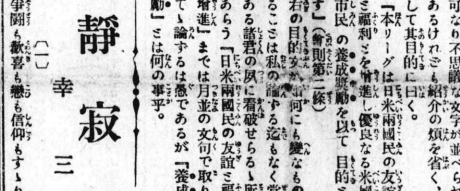 可なり不思議な文字が並べら
あるけれども紹介の煩を省く、
して其目的に曰く。
『本リーグは日米兩國民の友誼
と福利とを增進し優良なる米國
市民の養成奬勵を以て目的と
す』(會則第二條)
右の目的文が如何にも變なもの
ることは私の論する迄もなく
ある諸君の夙に看破せらるゝ所
あらう『日米兩國民の友誼と福
增進』までは月並の文句で取り
てゝ論するは愚であるが『養成
勵』とは何の事乎。
靜寂
(一)
幸三
爭鬪も歡喜も戀も信仰もすゝり